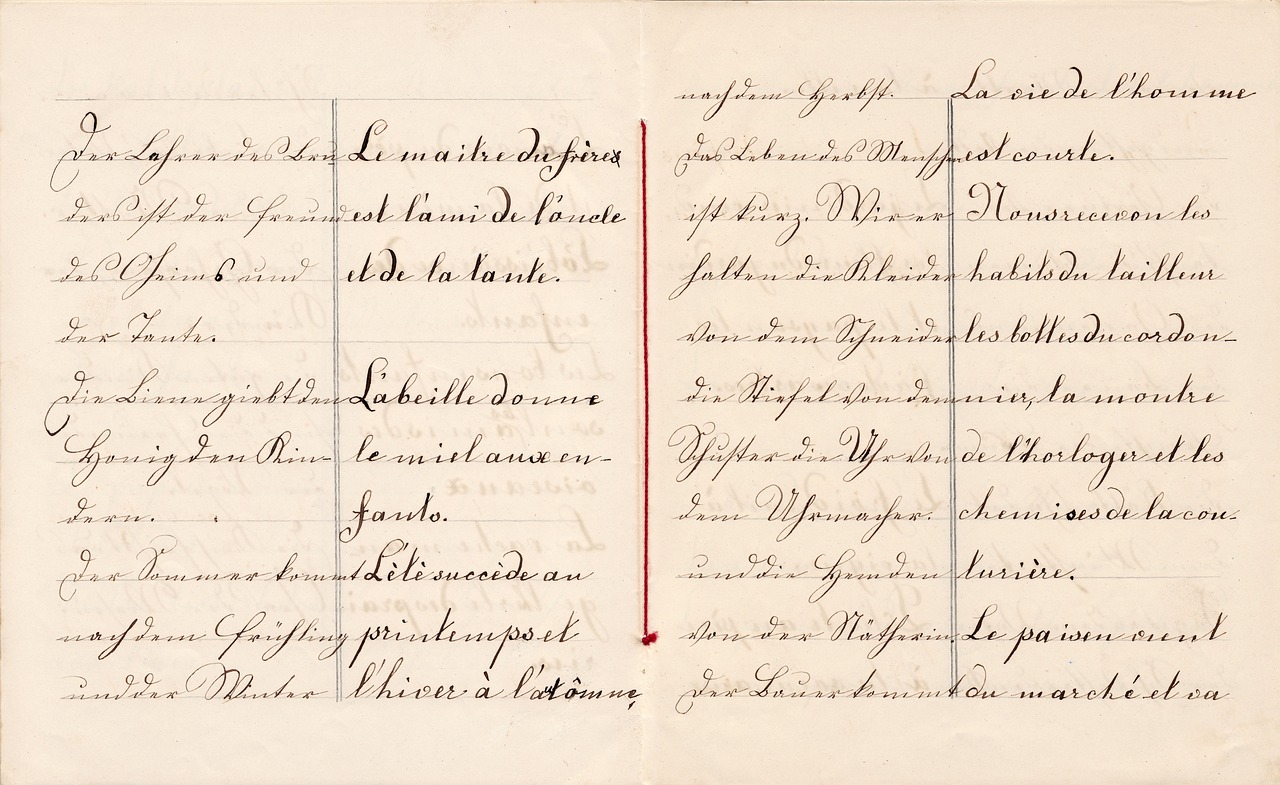 Der Lehrer des Bru
ders ist der Freund
des Oheims und
der Tante.
Die Biene giebt den
Honig den Kin-
dern.
Der Sommer kommt
nach dem Frühling
und der Winter
Le maitre du frères
est l'ami de l'oncle
et de la tante.
L'abeille donne
le miel aux en-
fants.
L'étè succède au
printemps et
l'hiver à l'atômne,
nach dem Herbst.
Das Leben des Menschen
ist kurz. Wir er
halten die Kleider
von dem Schneider
die Stiefel von dem
Schuster die Uhr von
dem Uhrmacher.
und die Hemden
von der Nätherin.
Der Bauer kommt
La vie de l'homme
est courte.
Nous recevon les
habits du tailleur
les bottes du cordon-
nier, la montre
de l'horloger et les
chemises de la cou-
turière.
Le paisen vient
du marché et va